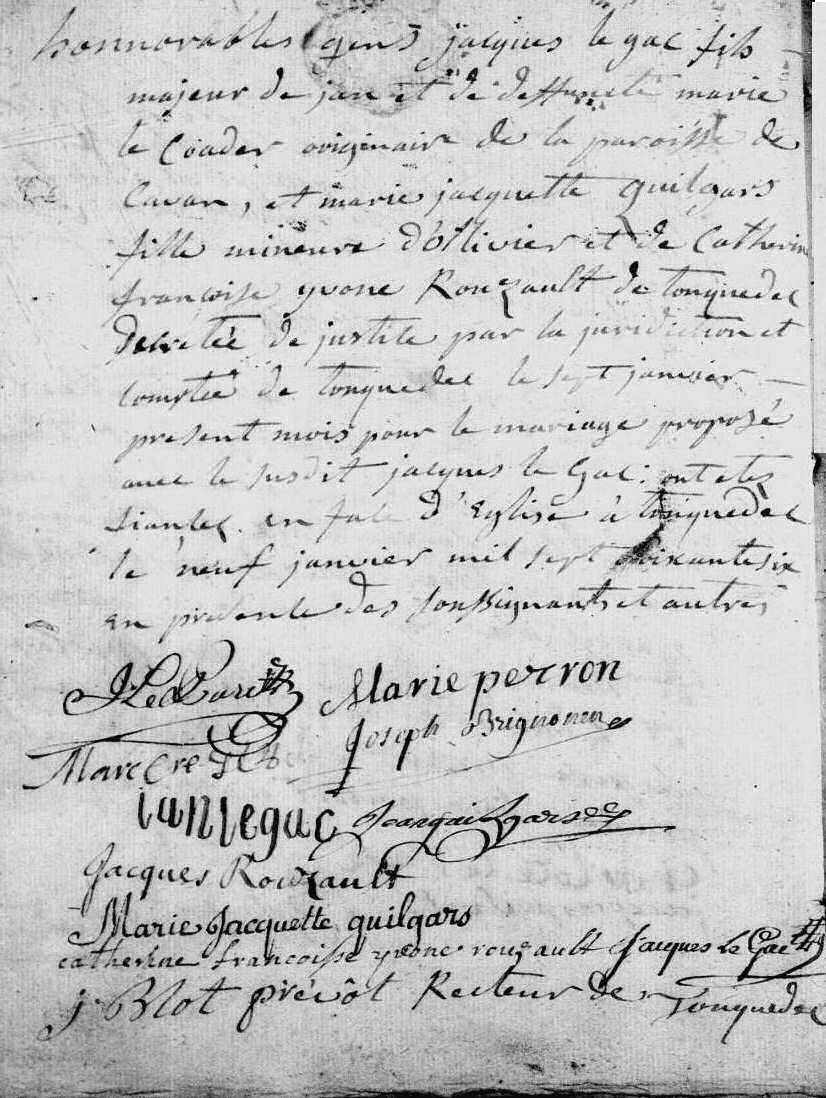 honnorables gens jacques le gac fils
majeur de jan et de deffuncte marie
le Coader originaire de la paroisse de
Cavan, et marie jacquette quilgars
fille mineure d'ollivier et de Catherine
françoise yvone Rouzault de tonquedec
decretée de justice par la juridiction et
Comptée de tonquedec le sept janvier
present mois pour le mariage proposé
avec le susdit jacques le Gac: ont etes
fiancés en face d'Eglise à tonquedec
le neuf janvier mil sept soixante six
en presence des soussignants et autres
Marie perron
Joseph Brignonen
Marc
ian le gac
Jacques Rouzault
Marie Jacquette quilgars
catherine francoisse yvone rouzault Jacques le Gac
j Blot précôt Recteur de Tonquedec